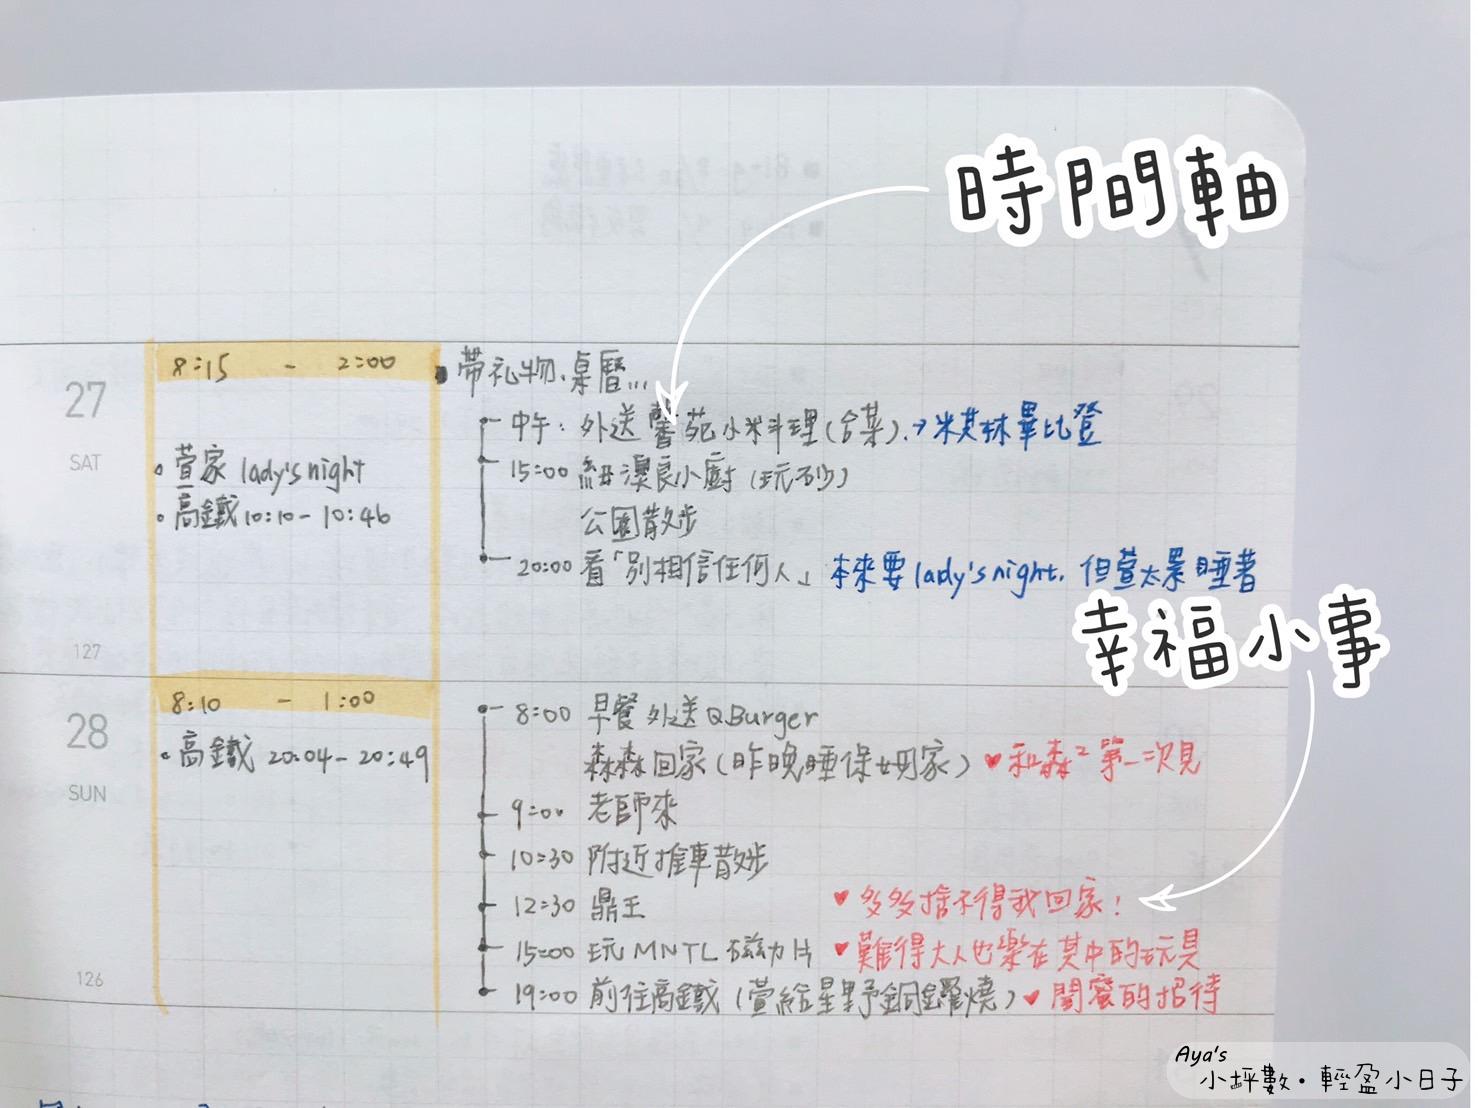 時間軸
27
SAT
127
8:15 - 2:00
萱家 lady's night
高鐵 10:10 - 10:46
帶礼物、桌曆...
中午: 外送馨苑小料理(合菜).→米其林畢比登
15:00 紐澳良小廚 (玩砂)
公園散步
20:00 看「別相信任何人」 本來要lady's night. 但萱太累睡著
幸福小事
28
SUN
126
8:10 - 1:00
高鐵 20:04 - 20:49
8:00 早餐 外送 QBurger
森森回家(昨晚睡保姆家) ♥和森²第一次見
9:00 老師來
10:30 附近推車散步
12:30 鼎王 ♥多多捨不得我回家!
15:00 玩 MNTL 磁力片 ♥難得大人也樂在其中的玩具
19:00 前往高鐵 (萱給星野銅鑼燒) ♥閨蜜的招待
Aya's
小坪數・輕盈小日子